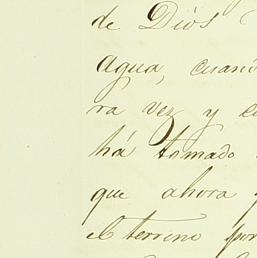 de Dios
agua, cuan
ra vez y
há tomado
que ahora
el terreno por